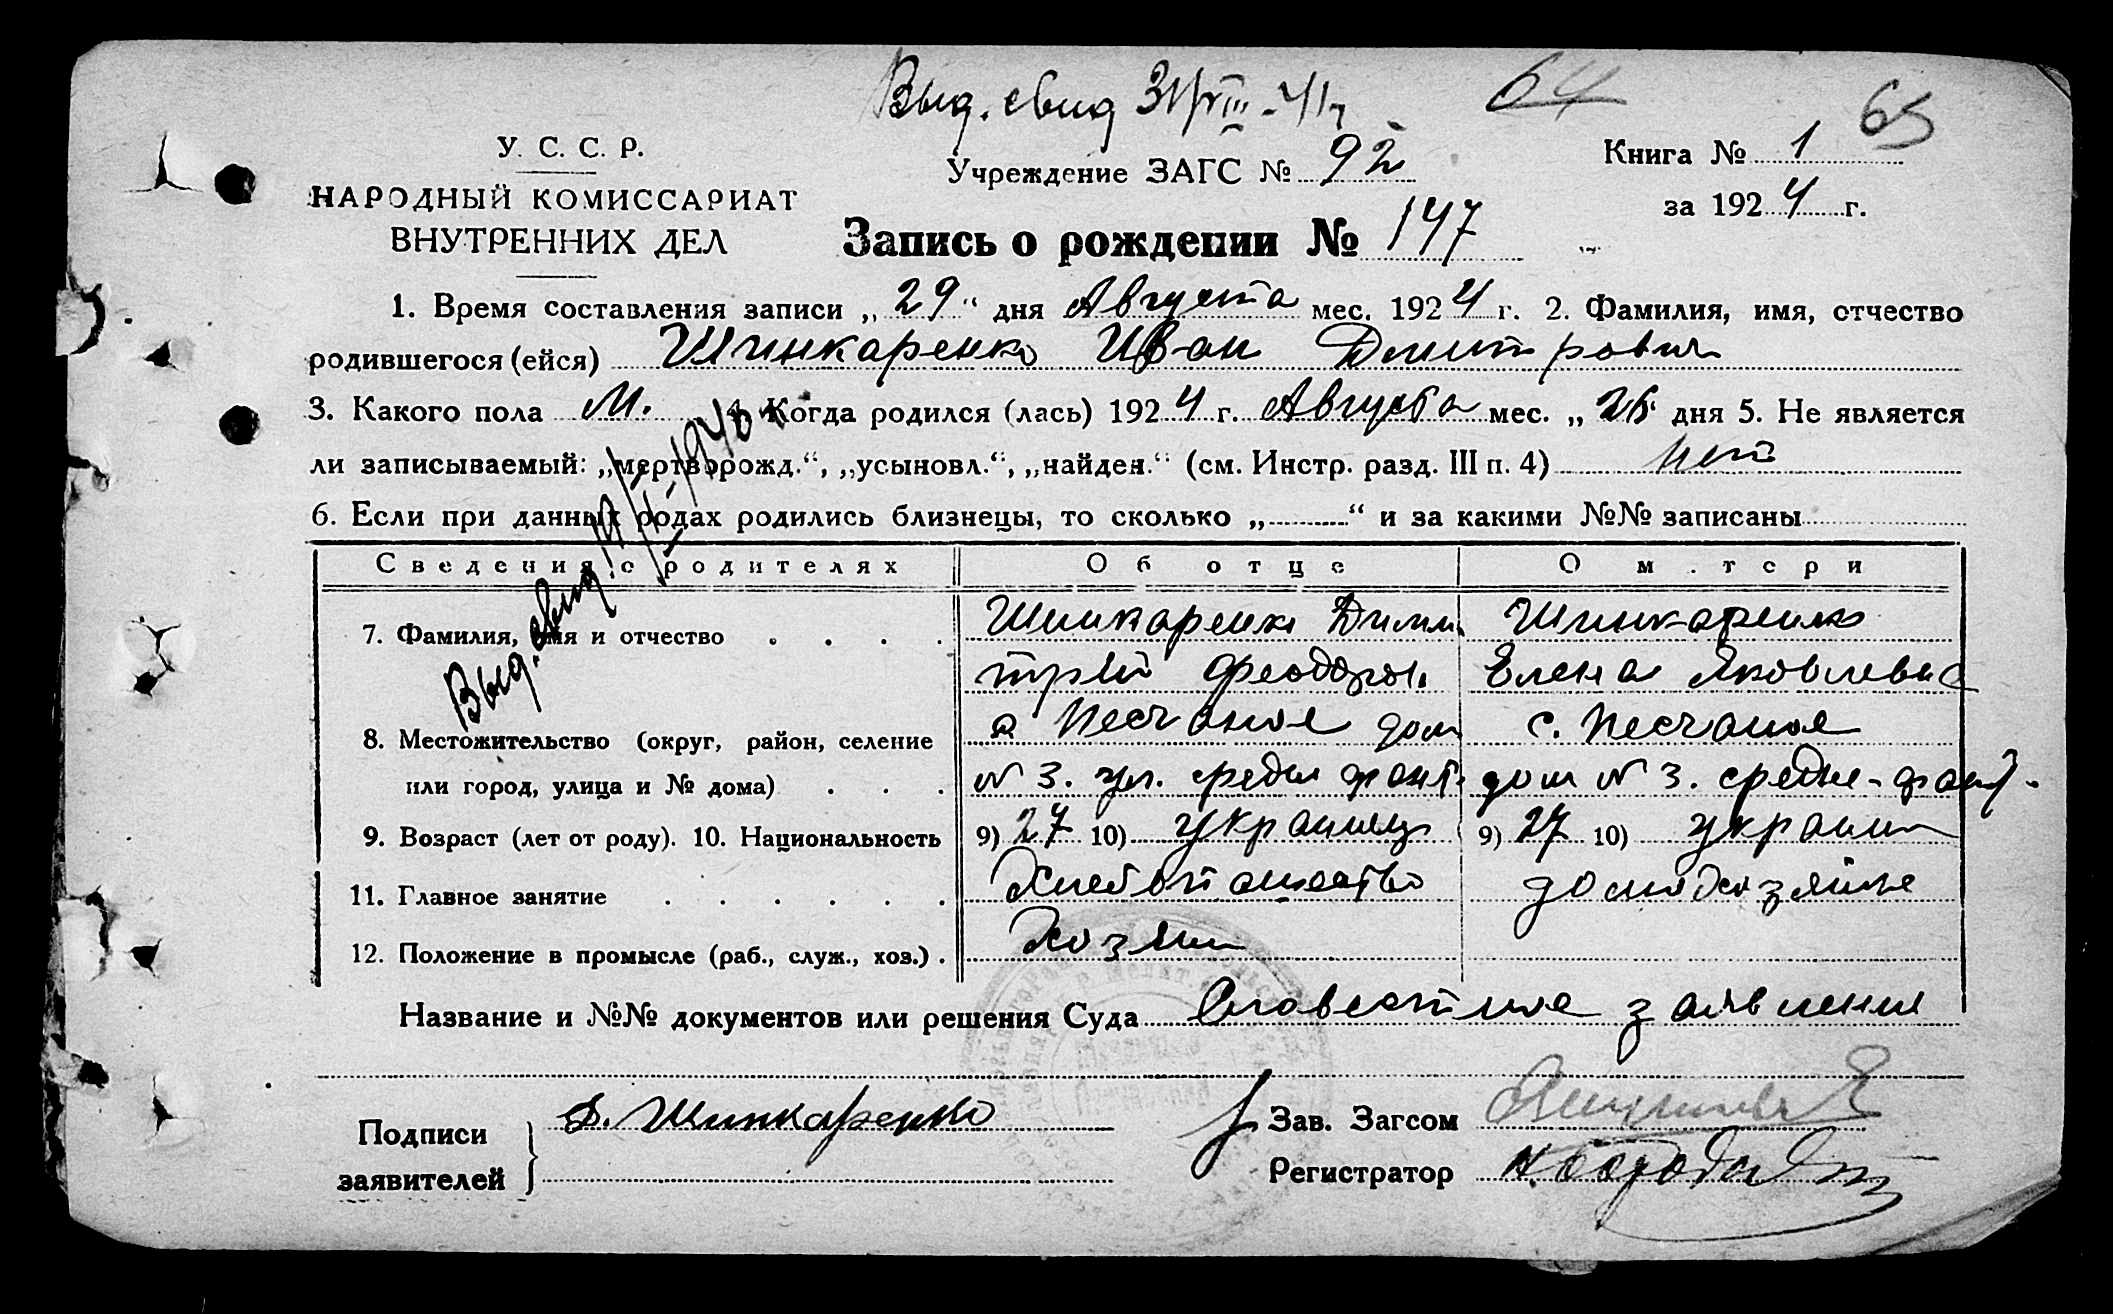 Выд. свид 31/VIII-41г. 64 65
У. С. С. Р.
НАРОДНЫЙ КОМИССАРИАТ
ВНУТРЕННИХ ДЕЛ
Учреждение ЗАГС № 92
Книга № 1
за 1924 г.
Запись о рождении № 147
1. Время составления записи „29“ дня Августа мес. 1924 г. 2. Фамилия, имя, отчество
родившегося (ейся) Шинкаренко Иван Дмитрович
3. Какого пола М. 4. Когда родился (лась) 1924 г. Августа мес. „26 дня 5. Не является
ли записываемый: „мертворожд.“, „усыновл.“, „найден.“ (см. Инстр. разд. III п. 4) нет
6. Если при данных родах родились близнецы, то сколько „ “ и за какими №№ записаны
Выд. свид.
Сведения о родителях Об отце О м.тери
7. Фамилия, имя и отчество Шинкаренко Дими Шинкаренко
трий Феодоров. Елена Яковлевна
8. Местожительство (округ, район, селение с Песчаное дом с. Песчаное
или город, улица и № дома) N 3. ул. средня дом N 3. средне-
9. Возраст (лет от роду). 10. Национальность 9) 27 10) украинец 9) 27 10) украин
11. Главное занятие Хлебопашество домохозяйке
12. Положение в промысле (раб., служ., хоз.) Хозяин
Название и №№ документов или решения Суда Словестное заявление
Подписи
заявителей
Д. Шинкаренко
Зав. Загсом
Регистратор